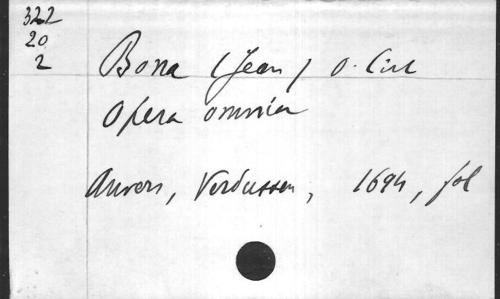 322
20
2
Bona (Jean) O. Cist
Opera omnia
Anvers, Verdussen, 1694, fol